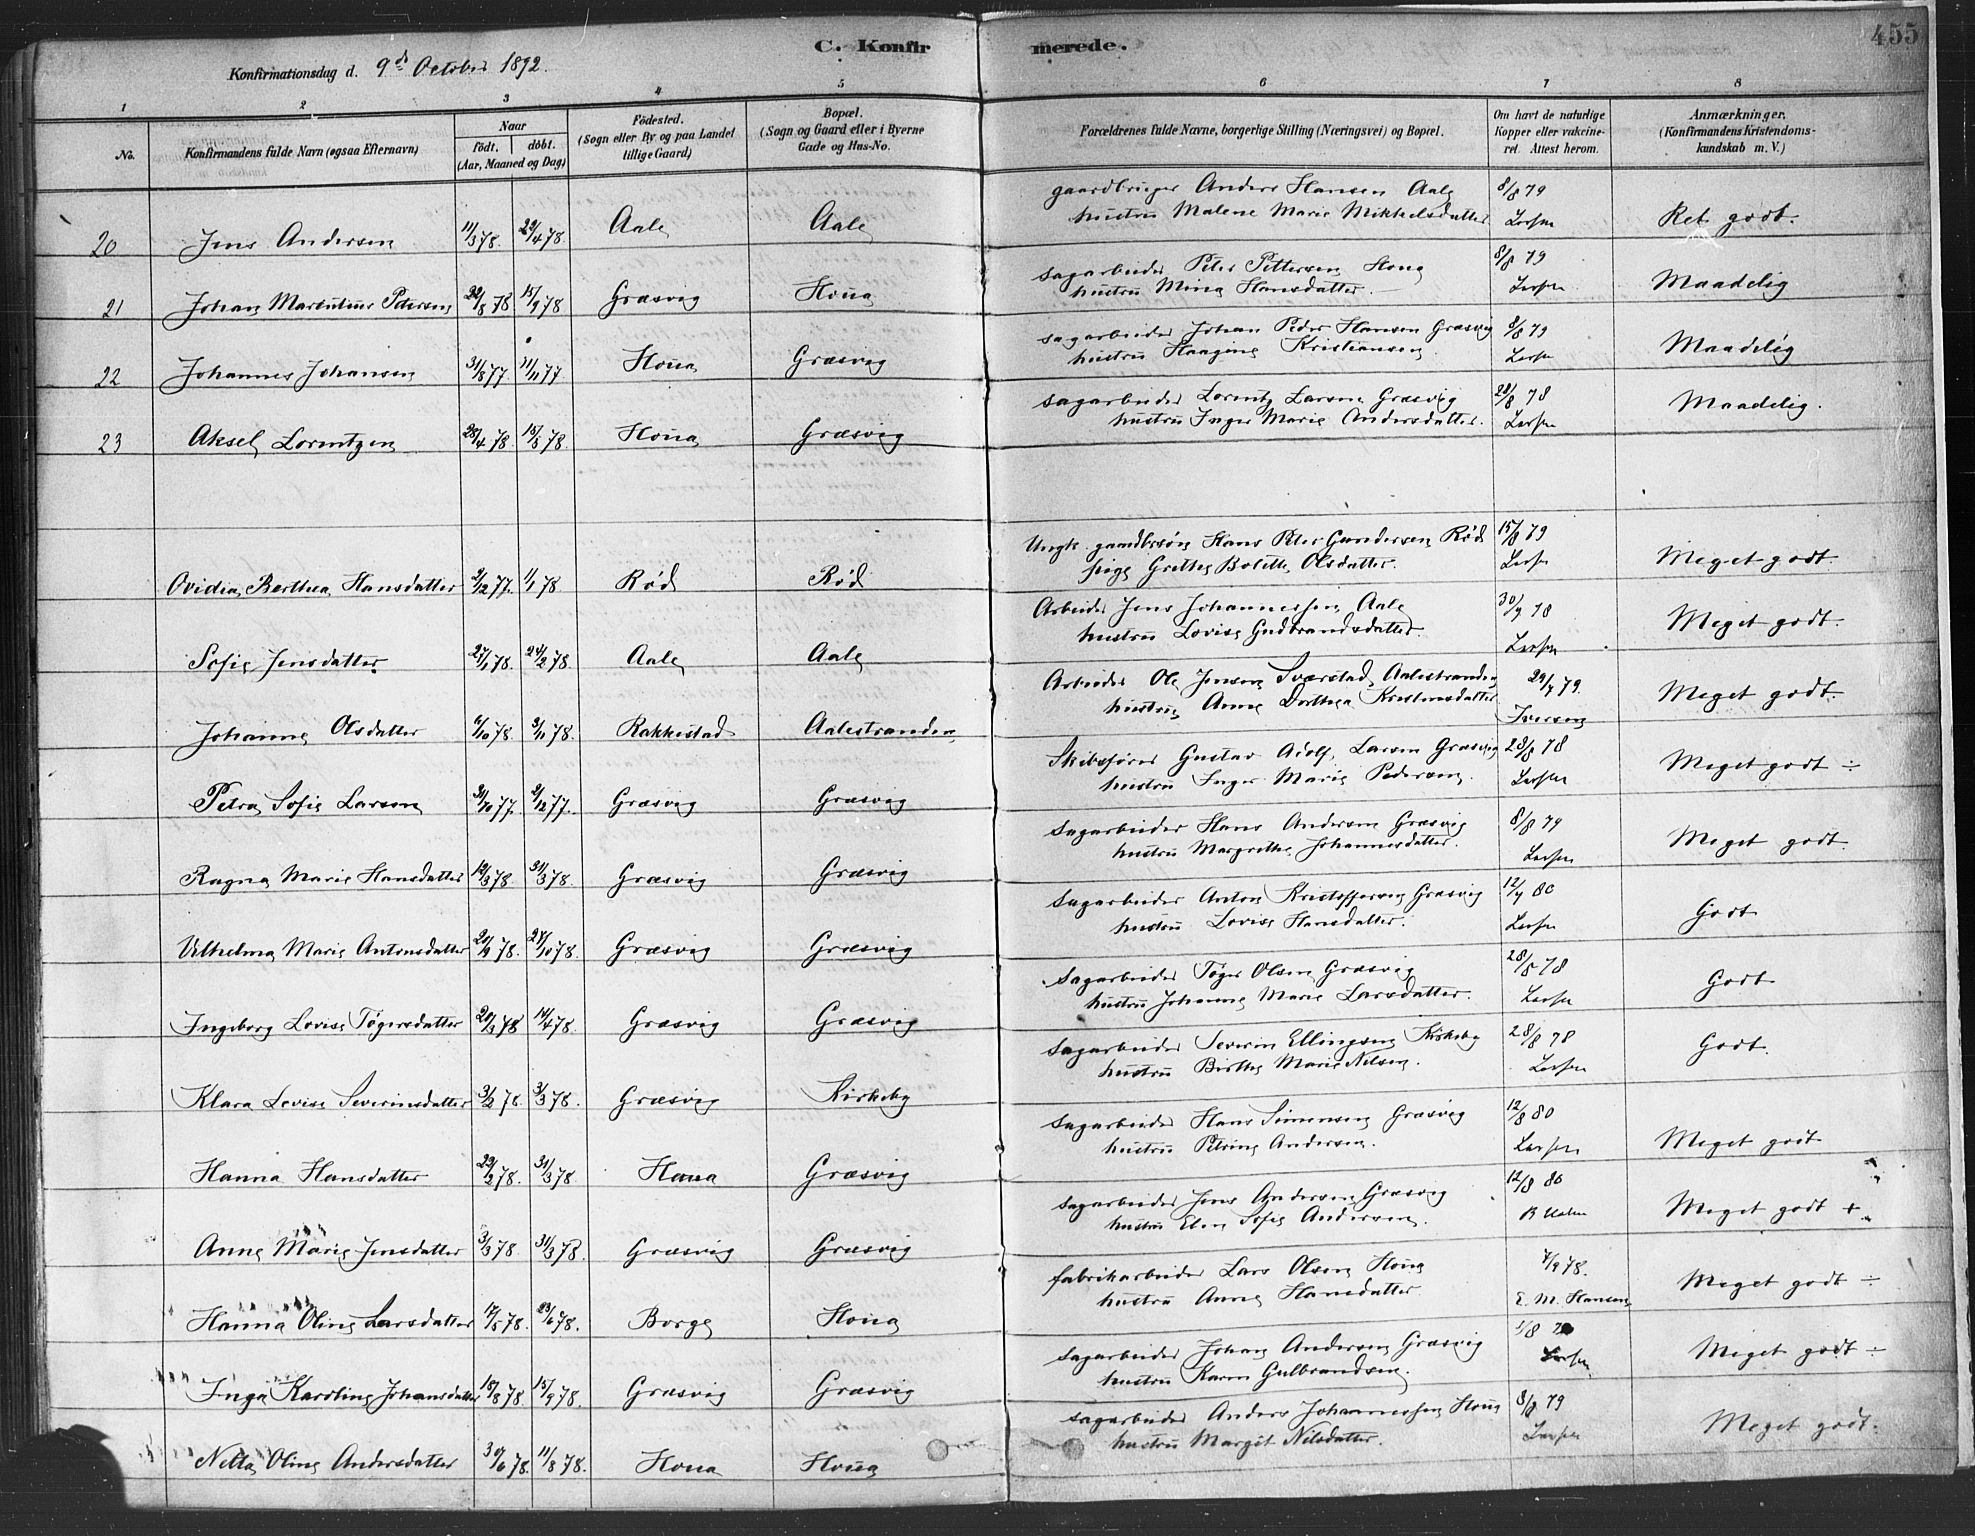 C. Konfirmerede.
455
Konfirmationsdag d. 9de October 1892.
1 2 3 4 5 6 7 8
No.
Konfirmandens fulde Navn (ogsaa Efternavn)
Naar
født. døbt.
(Aar, Maaned og Dag)
Fødested.
(Sogn eller By og paa Landet
tillige Gaard)
Bopæl.
(Sogn og Gaard eller i Byerne
Gade og Hus-No.
Forældrenes fulde Navne, borgerlige Stilling (Næringsvei) og Bopæl.
Om havt de naturlige
Kopper eller vakcine-
ret. Attest herom.
Anmærkninger.
(Konfirmandens Kristendoms-
kundskab m. V.)
gaardbruger Anders Hansen Aale 8/8 79
20 Jens Andersen 11/3 78. 29/4 78. Aale Aale hustru Malene Marie Mikkelsdatter Larsen Ret godt.
sagarbeider Peter Pettersen Houg 8/8 79
21 Johan Martinius Petersen 22/8 78 15/9 78 Græsvig Houg hustru Mina Hansdatter. Larsen Maadelig
sagarbeider Johan Peder Hansen Græsvig 8/8 79
22 Johannes Johansen 31/8 77 11/11 77. Houg Græsvig hustru Haagine Kristiansen. Larsen Maadelig
sagarbeider Lorentz Larsen Græsvig 28/8 78
23 Aksel Lorentzen 28/4 78 15/8 78. Houg Græsvig hustru Inger Marie Andersdatter. Larsen Maadelig.
Ungk. gaardbrsøn Hans Peter Gundersen Rød 15/8 79
Ovidia Berthea Hansdatter 2/12 77. 1/1 78. Rød Rød pige Grethe Bolette Olsdatter. Larsen Meget godt.
Arbeider Jens Johannessen Aale 30/9 78
Sofie Jensdatter. 27/1 78. 24/2 78. Aale Aale hustru Lovise Gudbrandsdatter. Larsen Meget godt.
Arbeider Ole Jensen Sværstad, Aalestranden 29/7 79.
Johanne Olsdatter 6/10 78. 3/11 78. Rakkestad Aalestranden hustru Anne Dorthea Kristensdatter Iversen Meget godt.
Skibsfører Gustav Adolf Larsen Græsvig 28/8 78
Petra Sofie Larsen 31/10 77. 2/12 77. Græsvig Græsvig hustru Inger Marie Pedersen. Larsen Meget godt ÷
sagarbeider Hans Andersen Græsvig 8/8 79
Ragna Marie Hansdatter 19/3 78. 31/3 78. Græsvig Græsvig hustru Margrethe Johannesdatter. Larsen Meget godt.
sagarbeider Anton Kristoffersen Græsvig 12/7 80
Vilhelma Marie Antonsdatter 20/9 78. 27/10 78. Græsvig Græsvig hustru Lovise Hansdatter. Larsen Godt
Sagarbeider Tøger Olsen Græsvig 28/8 78
Ingeborg Lovise Tøgersdatter 20/3 78 14/4 78. Græsvig Græsvig hustru Johanne Marie Larsdatter. Larsen Godt
sagarbeider Severin Ellingsen Kirkeby 28/8 78
Klara Lovise Severinsdatter 3/2 78. 3/3 78. Græsvig Kirkeby hustru Birthe Marie Nilsen. Larsen Godt.
sagarbeider Hans Simensen Græsvig 12/8 80
Hanna Hansdatter 22/2 78. 31/3 78. Houg Græsvig hustru Petrine Andersen. Larsen Meget godt
sagarbeider Jens Andersen Græsvig 12/8 80
Anne Marie Jensdatter 3/3 78. 31/3 78. Græsvig Græsvig hustru Elen Sofie Andersen. Meget godt +
fabrikarbeider Lars Olsen Houg 7/9 78.
Hanna Oline Larsdatter 17/5 78. 23/6 78. Borge Houg hustru Anne Hansdatter. E. M. Hansen Meget godt ÷
sagarbeider Johan Andersen Græsvig
Inga Karoline Johansdatter 18/8 78. 15/9 78. Græsvig Græsvig hustru Karen Gulbrandsen. Larsen Meget godt ÷
sagarbeider Anders Johannessen Houg 8/8 79
Netta Oline Andersdatter 30/6 78. 11/8 78. Houg Houg hustru Margit Nilsdatter. Larsen Meget godt.